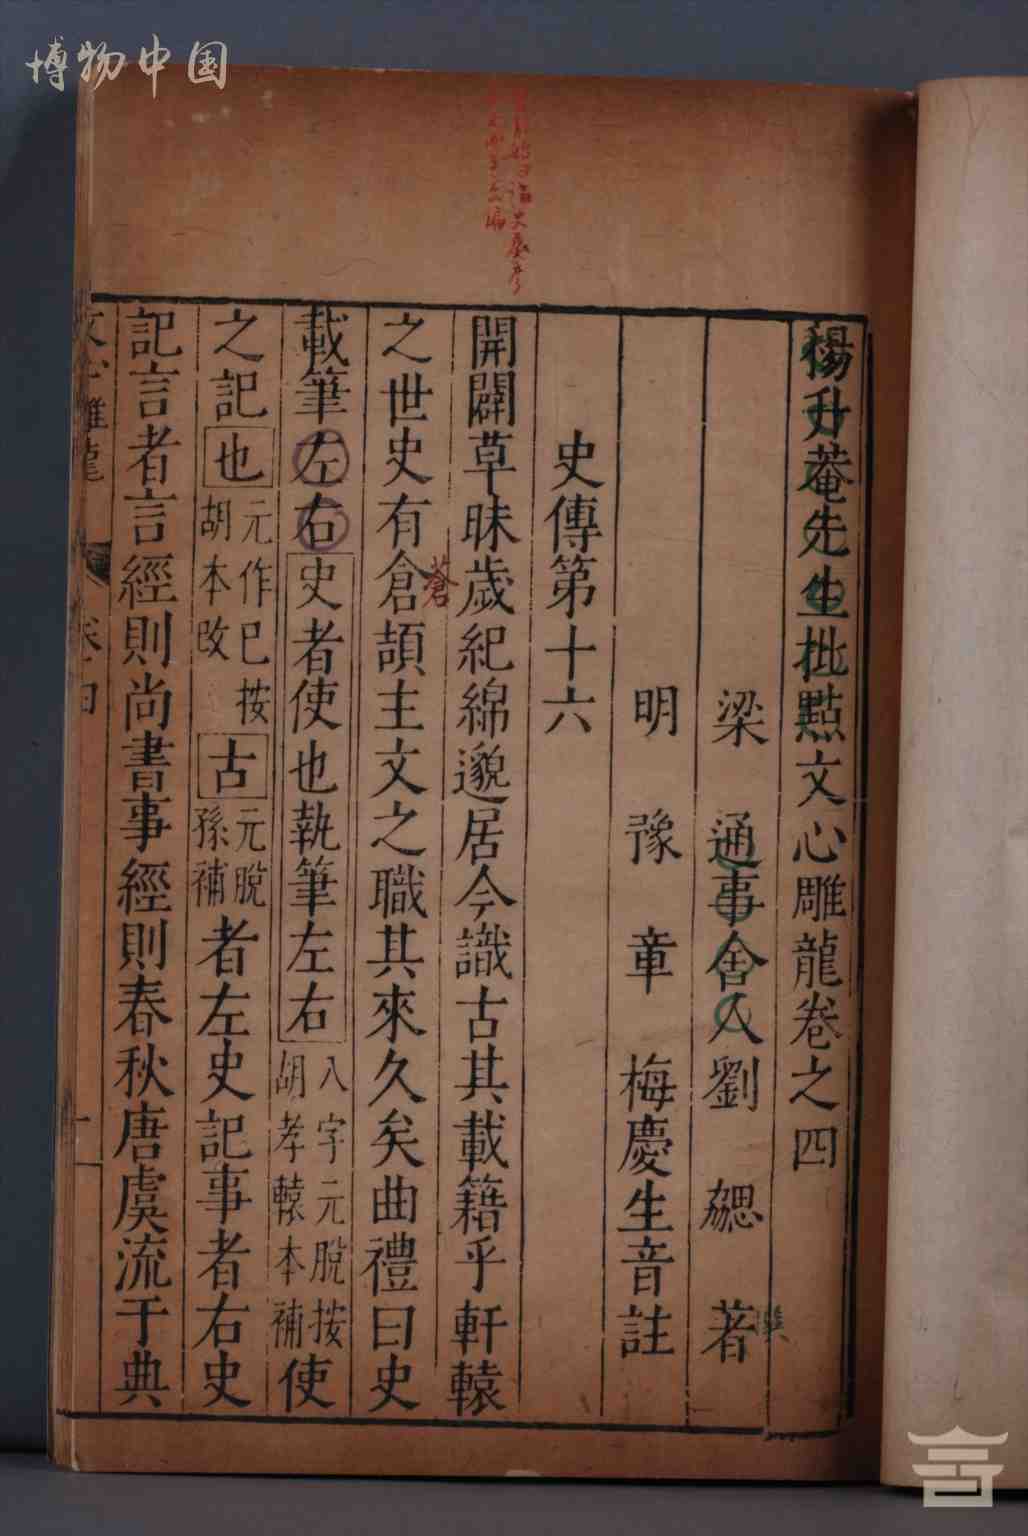 博物中国
楊升菴先生批點文心雕龍卷之四
梁通事舍人劉勰著
明豫章梅慶生音註
史傳第十六
開闢草昧歲紀綿邈居今識古其載籍乎軒轅
之世史有倉頡主文之職其來久矣曲禮曰史
蒼
載筆左右史者使也執筆左右八字元脫按胡孝轅本補使
之記也元作巳按胡本改古元脫孫補者左史記事者右史
記言者言經則尚書事經則春秋唐虞流于典
文心雕龍
卷四
一